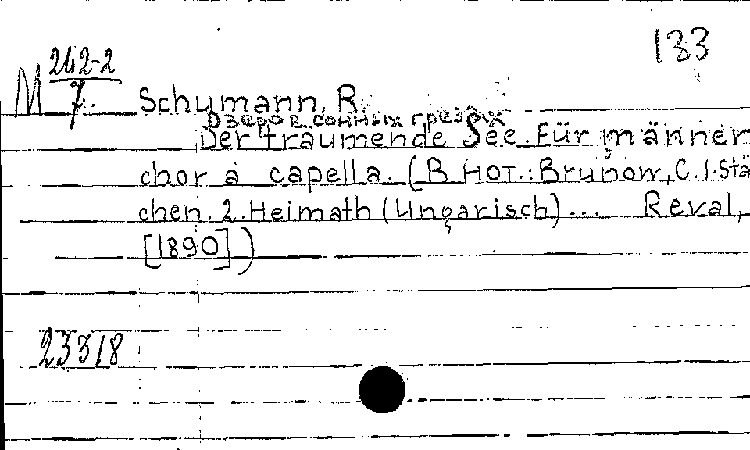 133
М 242-2
7.
Schumann, R.
Озеро в сонных грезах
Der träumende See. Für männer
chor a capella. (В нот.: Brunow, C. 1. Stä
chen. 2. Heimath (Ungarisch)... Reval,
[1890])
23318